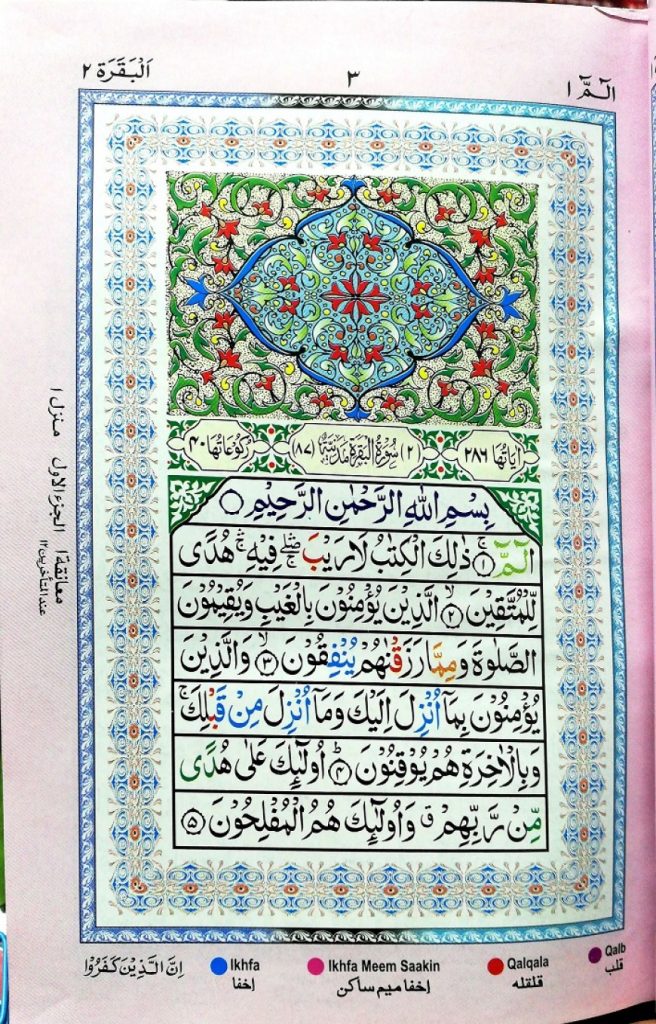 الٓمّٓ ١
٣
اَلْبَقَرَة ٢
اٰيَاتُهَا ٢٨٦
(٢) سُوْرَةُ الْبَقَرَةِ مَدَنِيَّةٌ (٨٧)
رُكُوْعَاتُهَا ٤٠
بِسْمِ اللّٰهِ الرَّحْمٰنِ الرَّحِيْمِ
الٓمّٓ ۚ ١ ذٰلِكَ الْكِتٰبُ لَا رَيْبَ ۛۖۚ فِيْهِ ۛۚ هُدًى
لِّلْمُتَّقِيْنَ ۙ ٢ الَّذِيْنَ يُؤْمِنُوْنَ بِالْغَيْبِ وَيُقِيْمُوْنَ
الصَّلٰوةَ وَمِمَّا رَزَقْنٰهُمْ يُنْفِقُوْنَ ۙ ٣ وَالَّذِيْنَ
يُؤْمِنُوْنَ بِمَاۤ اُنْزِلَ اِلَيْكَ وَمَاۤ اُنْزِلَ مِنْ قَبْلِكَ ۚ
وَبِالْاٰخِرَةِ هُمْ يُوْقِنُوْنَ ؕ ٤ اُولٰٓئِكَ عَلٰى هُدًى
مِّنْ رَّبِّهِمْ ۗ وَاُولٰٓئِكَ هُمُ الْمُفْلِحُوْنَ ٥
معانقة ١ الجزء الاول منزل ١
عند المتأخرين ١٢
اِنَّ الَّذِيْنَ كَفَرُوْا
Ikhfa
إخفا
Ikhfa Meem Saakin
إخفا ميم ساكن
Qalqala
قلقله
Qalb
قلب